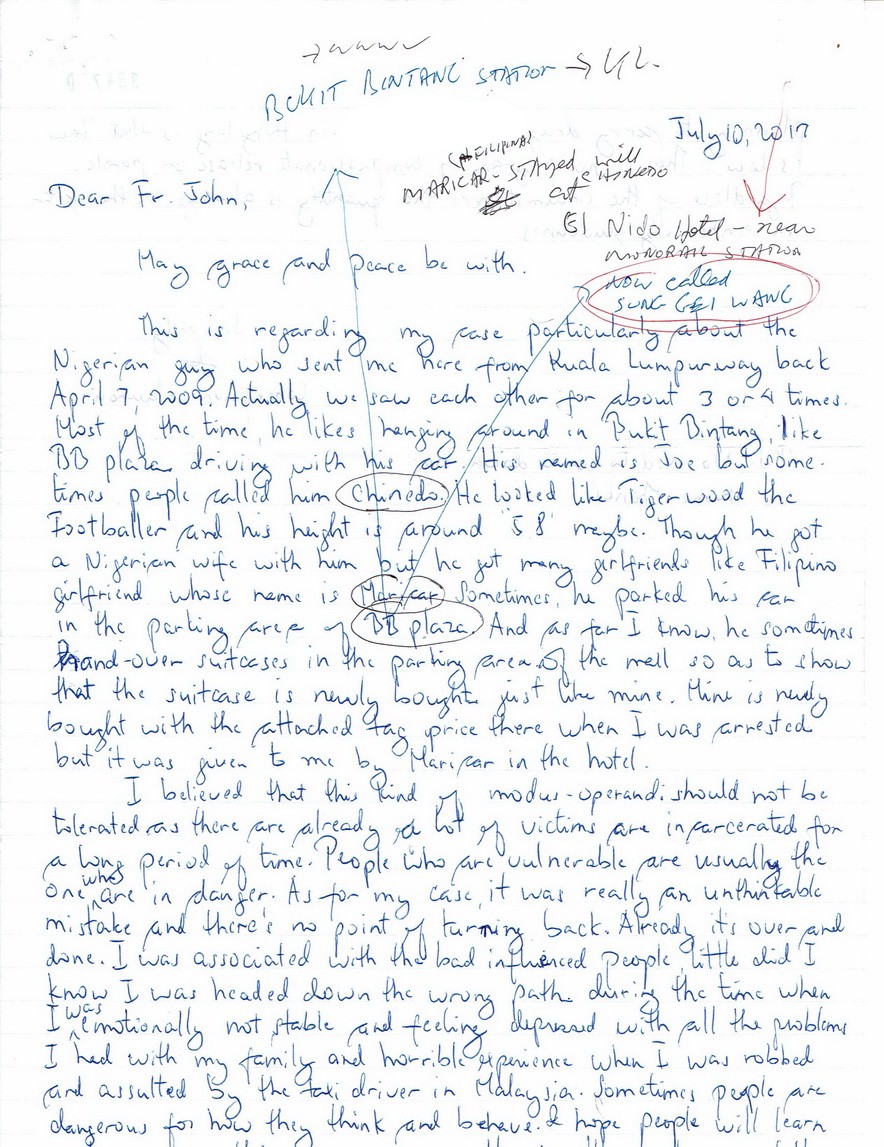 BUKIT BINTANG STATION → KL.
July 10, 2017
(FILIPINA)
MARICAR - STAYED with
at CHINEDO
El Nido Hotel - near
MONORAIL STATION
Dear Fr. John,
NOW called
SUNG GEI WANG
May grace and peace be with.
This is regarding my case particularly about the
Nigerian guy who sent me here from Kuala Lumpur way back
April 7, 2009. Actually we saw each other for about 3 or 4 times.
Most of the time, he likes hanging around in Bukit Bintang, like
BB plaza driving with his car. His named is Joe but some-
times people called him Chinedo. He looked like Tiger wood the
Footballer and his height is around 5'8' maybe. Though he got
a Nigerian wife with him but he got many girlfriends like Filipino
girlfriend whose name is Maricar Sometimes, he parked his car
in the parking area of BB plaza. And as far I know, he sometimes
hand-over suitcases in the parking area of the mall so as to show
that the suitcase is newly bought just like mine. Mine is newly
bought with the attached tag price there when I was arrested
but it was given to me by Maricar in the hotel.
I believed that this kind of modus-operandi should not be
tolerated as there are already a lot of victims are incarcerated for
a long period of time. People who are vulnerable are usually the
one who are in danger. As for my case, it was really an unthinkable
mistake and there's no point of turning back. Already it's over and
done. I was associated with the bad influenced people, little did I
know I was headed down the wrong path during the time when
I was emotionally not stable and feeling depressed with all the problems
I had with my family and horrible experience when I was robbed
and assulted by the taxi driver in Malaysia. Sometimes people are
dangerous for how they think and behave. I hope people will learn